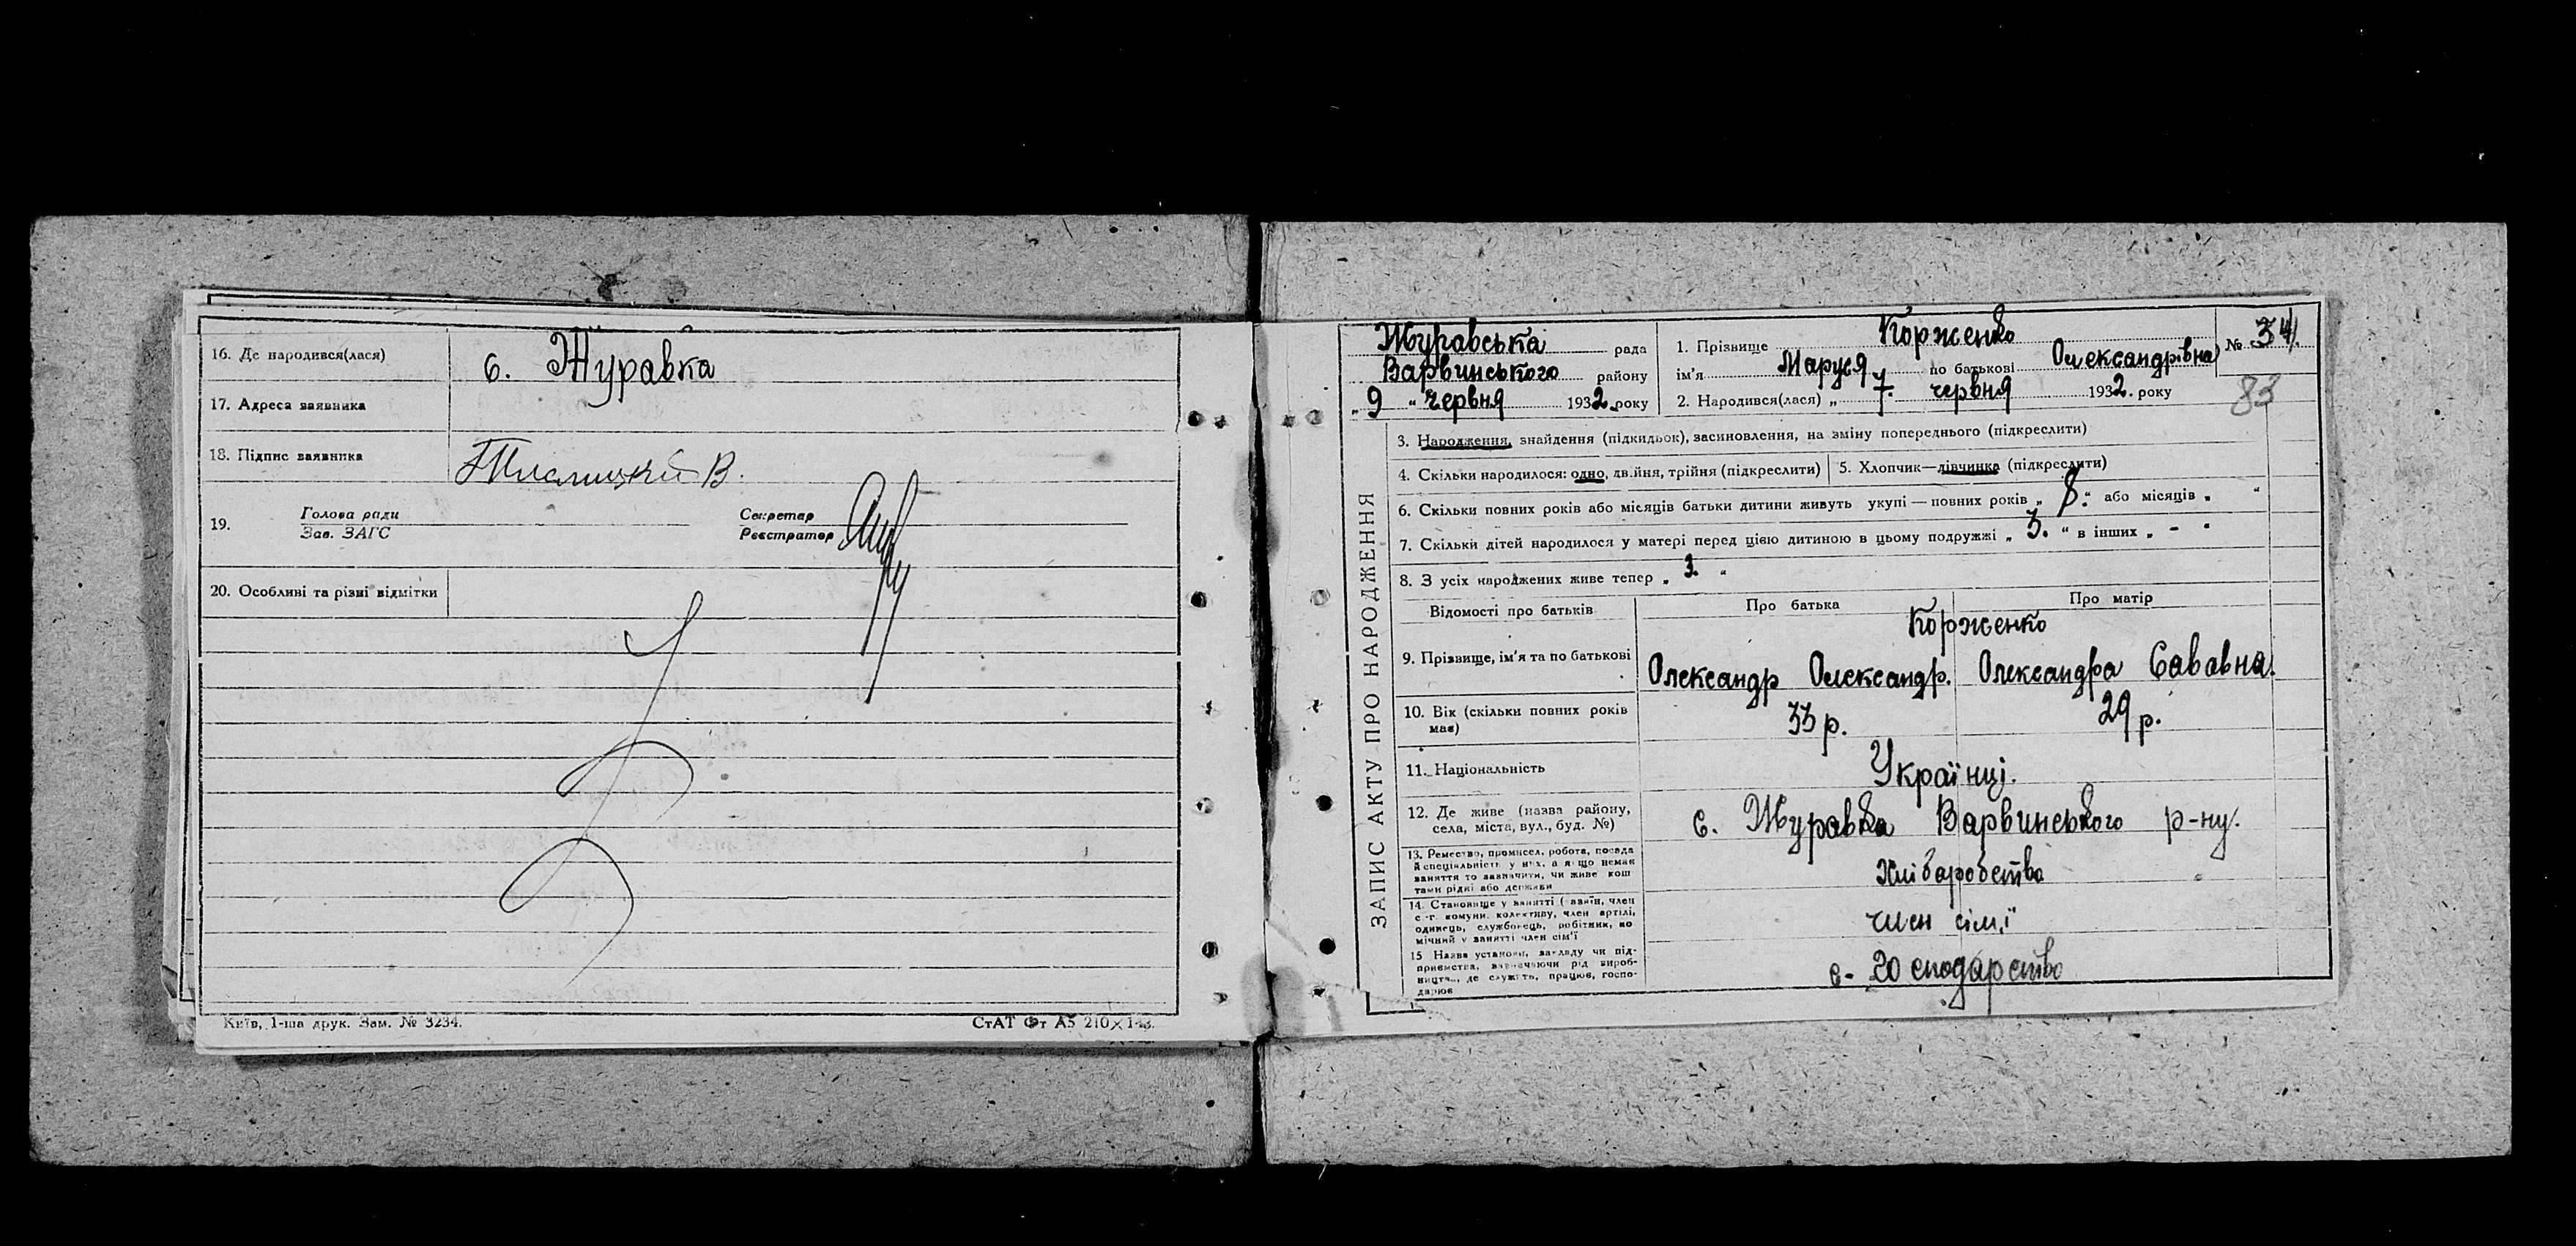 16. Де народився(лася) с. Журавка
17. Адреса заявника
18. Підпис заявника В.
19. Голова ради Секретар
Зав. ЗАГС Реєстратор
20. Особливі та різні відмітки
Київ, 1-ша друк. Зам. № 3234. СтАТ Фт А5 210×148.
ЗАПИС АКТУ ПРО НАРОДЖЕННЯ
Журавська рада
Варвинського району
„ 9 “ червня 1932. року
1. Прізвище Корженко
ім'я Маруся по батькові Олександрівна
2. Народився(лася) „ 7. червня 1932. року
№ 34.
83
3. Народження, знайдення (підкидьок), засиновлення, на зміну попереднього (підкреслити)
4. Скільки народилося: одно, двійня, трійня (підкреслити) 5. Хлопчик—дівчинка (підкреслити)
6. Скільки повних років або місяців батьки дитини живуть укупі — повних років „ 8. “ або місяців „ “
7. Скільки дітей народилося у матері перед цією дитиною в цьому подружжі „ 3. “ в інших „ - “
8. З усіх народжених живе тепер „ 3. “
Відомості про батьків Про батька Про матір
Корженко
9. Прізвище, ім'я та по батькові Олександр Олександр. Олександра Сававна.
10. Вік (скільки повних років має) 33 р. 29 р.
11. Національність Українці.
12. Де живе (назва району,
села, міста, вул., буд. №) с. Журавка Варвинського р-ну.
13. Ремество, промисел, робота, посада
й спеціяльність у них, а якщо немає
заняття то зазначити, чи живе кош
тами рідні або держави
Хліборобство
14. Становище у занятті (хазяїн, член
с.-г. комуни, колективу, член артілі,
одинець, службовець, робітник, по
мічний у занятті член сім'ї
член сім,ї
15 Назва установи, закладу чи під-
приємства, зазначаючи рід вироб-
ництва, де служить, працює, госпо-
дарює
с- господарство